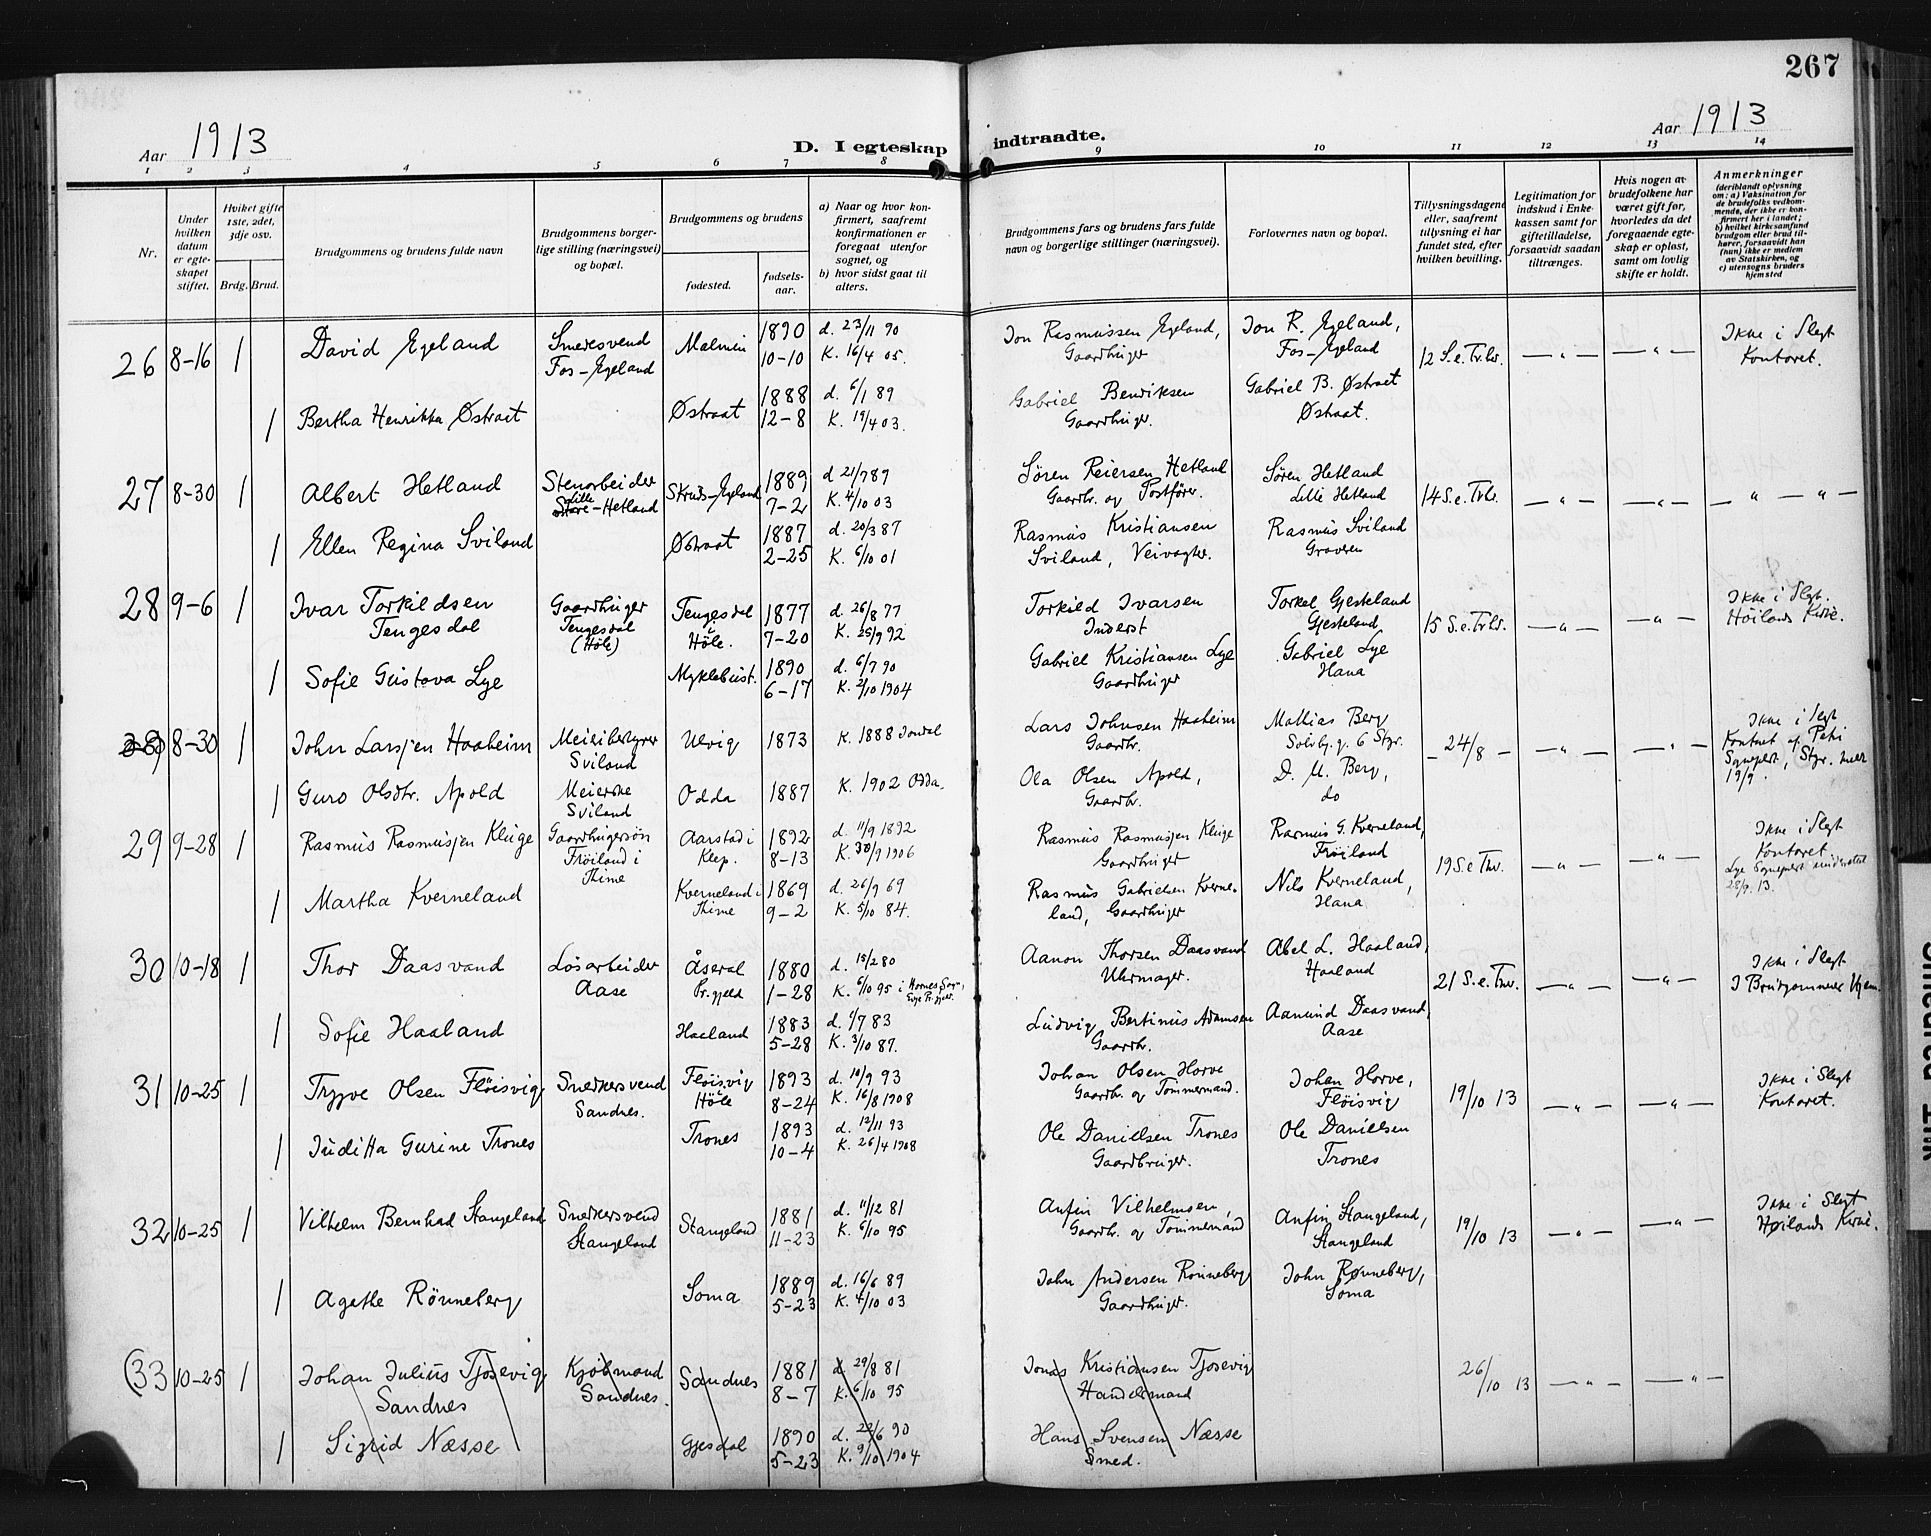 267
Aar 1913
D. I egteskap indtraadte.
Aar 1913
1 2 3 4 5 6 7 8 9 10 11 12 13 14
Nr.
Under hvilken datum er egteskapet stiftet.
Hviket gifte 1ste, 2det, 3dje osv.
Brdg. Brud.
Brudgommens og brudens fulde navn
Brudgommens borgerlige stilling (næringsvei) og bopæl.
Brudgommens og brudens
fødested.
fødselsaar.
a) Naar og hvor konfirmert, saafremt konfirmationen er foregaat utenfor sognet, og
b) hvor sidst gaat til alters.
Brudgommens fars og brudens fars fulde navn og borgerlige stillinger (næringsvei).
Forlovernes navn og bopæl.
Tillysningsdagene eller, saafremt tillysning ei har fundet sted, efter hvilken bevilling.
Legitimation for indskud i Enkekassen samt for giftetilladelse, forsaavidt saadan tiltrænges.
Hvis nogen av brudefolkene har været gift før, hvorledes da det foregaaende egteskap er opløst, samt om lovlig skifte er holdt.
Anmerkninger
(deriblandt oplysning om: a) Vaksination for de brudefolks vedkommende, der ikke er konfirmert her i landet; b) hvilket kirkesamfund brudgom eller brud tilhører, forsaavidt han (hun) ikke er medlem av Statskirken, og c) utensogns bruders hjemsted
26 8-16 1 David Egeland Smedesvend Fos-Egeland Malmin 1890 10-10 d. 23/11 90 K. 16/4 05. Jon Rasmussen Egeland, Gaardbruger Jon R. Egeland, Fos-Egeland 12 S.e.Tr. — " — — " — Ikke i Slegt Kontoret.
1 Bertha Henrikka Østraat Østraat 1888 12-8 d. 6/1 89 K. 19/4 03. Gabriel Bendiksen Gaardbruger. Gabriel B. Østraat Østraat.
27 8-30 1 Albert Hetland Stenarbeider Lille-Hetland Skruds-Egeland 1889 7-2 d 21/7 89 K. 4/10 03 Søren Reiersen Hetland Gaardbr. og Postfører. Søren Hetland Lille Hetland 14 S.e.Tr. — " — — " — — " — " —
1 Ellen Regina Sviland Østraat 1887 2-25 d. 20/3 87 K. 6/10 01 Rasmus Kristiansen Sviland, Veivogter. Rasmus Sviland Graveren
28 9-6 1 Ivar Torkildsen Tengesdal Gaardbruger Tengesdal (Høle) Tengesdal i Höle. 1877 7-20 d. 26/8 77 K. 25/9 92 Torkild Ivarsen Inderst Torkel Gjesteland Gjesteland 15 S.e.Tr. — " — — " — Ikke i Slegt. Höilands Kirke.
1 Sofie Gustava Lye Myklebust. 1890 6-17 d. 6/7 90 K. 2/10 1904 Gabriel Kristiansen Lye Gaardbruger Gabriel Lye Hana
8-30 1 John Larssen Haaheim Meieribestyrer Sviland Ulvig 1873 K. 1888 Jondal Lars Johnsen Haaheim Gaardbr. Mathias Berg 24/8 — " — — " — Ikke i Slegt Kontoret 19/9.
1 Guro Olsdtr. Apold Meierske Sviland Odda 1887 K. 1902 Odda. Ola Olsen Apold, Gaardbr. D. M. Berg, do
29 9-28 1 Rasmus Rasmussen Kluge Gaardbrugersön Fröiland i Thime Aarstad i Klep. 1892 8-13 d. 11/9 1892 K. 30/9 1906 Rasmus Rasmussen Kluge Gaardbruger Rasmus G. Kverneland, Fröiland 19 S.e Tr. — " — — " — Ikke i Slegt Kontoret. 28/9. 13.
1 Martha Kverneland Kverneland i Thime 1869 9-2 d. 26/9 69 K. 5/10 84. Rasmus Gabrielsen Kverneland, Gaardbruger Nils Kverneland, Hana
30 10-18 1 Thor Daasvand Løsarbeider Aase Åseral Pr.gjeld 1880 1-28 d. 15/2 80 K. 6/10 95 i Hornes Sogn, Evje Pr.gjeld. Aanon Thorsen Daasvand Uhrmager. Abel L. Haaland, Haaland 21 S.e. Tr. — " — — " — Ikke i Slegt I Brudgommens Hjem.
1 Sofie Haaland Haaland 1883 5-28 d. 1/7 83 K. 3/10 87. Ludvig Bertinius Adamsen Gaardbr. Aanund Daasvand, Aase
31 10-25 1 Trygve Olsen Flöisvig Snedkersvend Sandnes. Flöisvig i Höle 1893 8-24 d. 10/9 93 K. 16/8 1908 Johan Olsen Horve Gaardbr. og Tömmermand. Johan Horve, Flöisvig 19/10 13 — " — — " — Ikke i Slegt Kontoret.
1 Juditta Gurine Trones Trones 1893 10-4 d. 12/11 93 K. 26/4 1908 Ole Danielsen Trones Gaardbruger. Ole Danielsen Trones
32 10-25 1 Vilhelm Bernhad Stangeland Snedkersvend Stangeland Stangeland 1881 11-23 d. 11/12 81 K. 6/10 95 Anfin Vilhelmsen, Gaardbr. og Tömmermand Anfin Stangeland, Stangeland 19/10 13 — " — — " — Ikke i Slegt Høilands Kirke.
1 Agathe Rönneberg Soma 1889 5-23 d. 16/6 89 K. 4/10 03 John Andersen Rönneberg Gaardbruger. John Rønneberg, Soma
(33 10-25 1 Johan Julius Tjosevig Sandnes Kjøbmand Sandnes. Sandnes 1881 8-7 d 29/8 81 K. 6/10 95 Jonas Kristiansen Tjosevig Handelsmand 26/10 13 — " — — " —
1 Sigrid Næsse Gjesdal 1890 5-23 d. 22/6 90 K. 9/10 1904 Hans Svensen Næsse Smed.